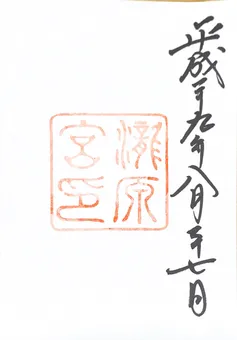 平成二十九年八月二十七日
瀧原
宮印